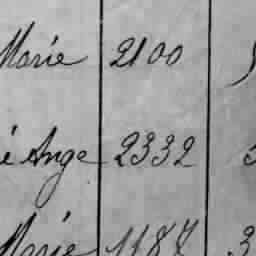 Marie 2100
é Ange 2332
Marie 1187 3